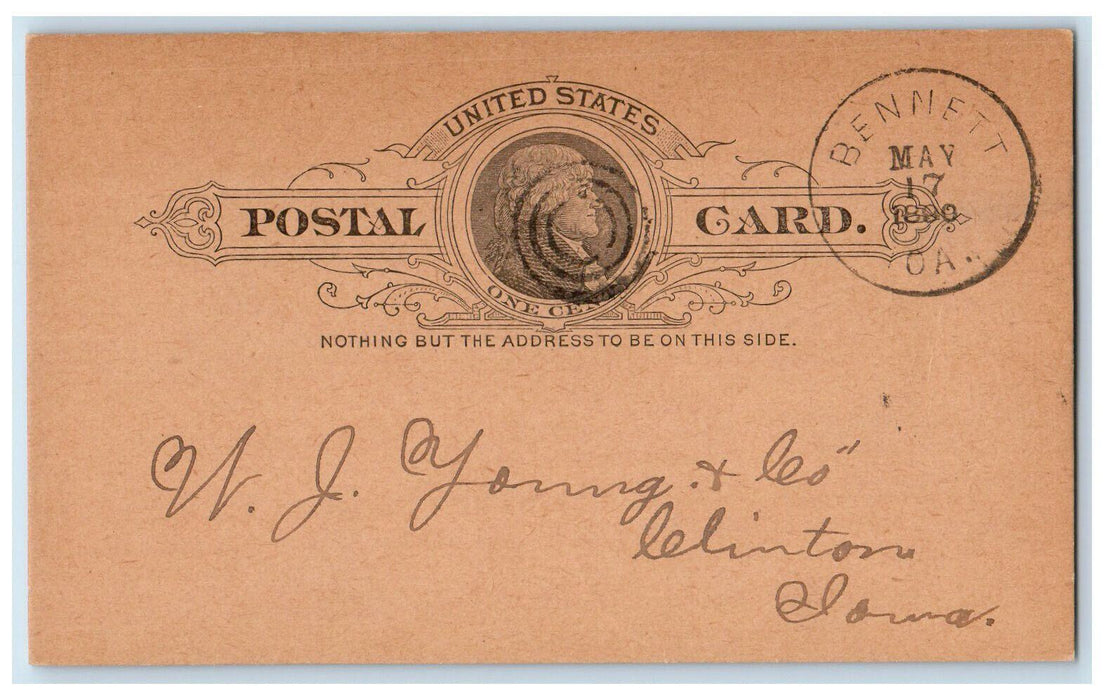 UNITED STATES
POSTAL CARD.
ONE CENT
NOTHING BUT THE ADDRESS TO BE ON THIS SIDE.
BENNETT
MAY
17
OA.
W. J. Young & Co
Clinton
Iowa.